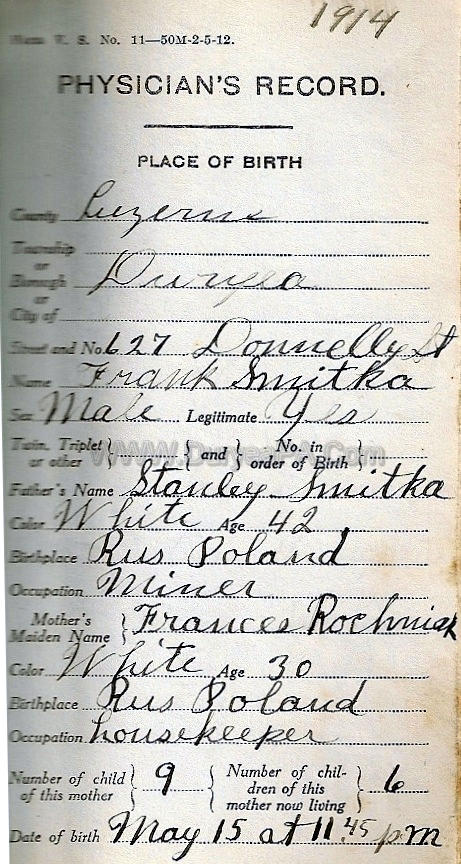 1914
Form V. S. No. 11—50M-2-5-12.
PHYSICIAN'S RECORD.
PLACE OF BIRTH
County Luzerne
Township
or
Borough Duryea
or
City of
Street and No. 627 Donnelly St
Name Frank Smitka
Sex Male Legitimate Yes
Twin, Triplet or other } { and } No. in order of Birth {
www.DuryeaPA.Com
Father's Name Stanley Smitka
Color White Age 42
Birthplace Rus Poland
Occupation Miner
Mother's Maiden Name } Frances Rochniak
Color White Age 30
Birthplace Rus Poland
Occupation housekeeper
Number of child of this mother } 9 { Number of chil-dren of this mother now living } 6
Date of birth May 15 at 11.45 pm